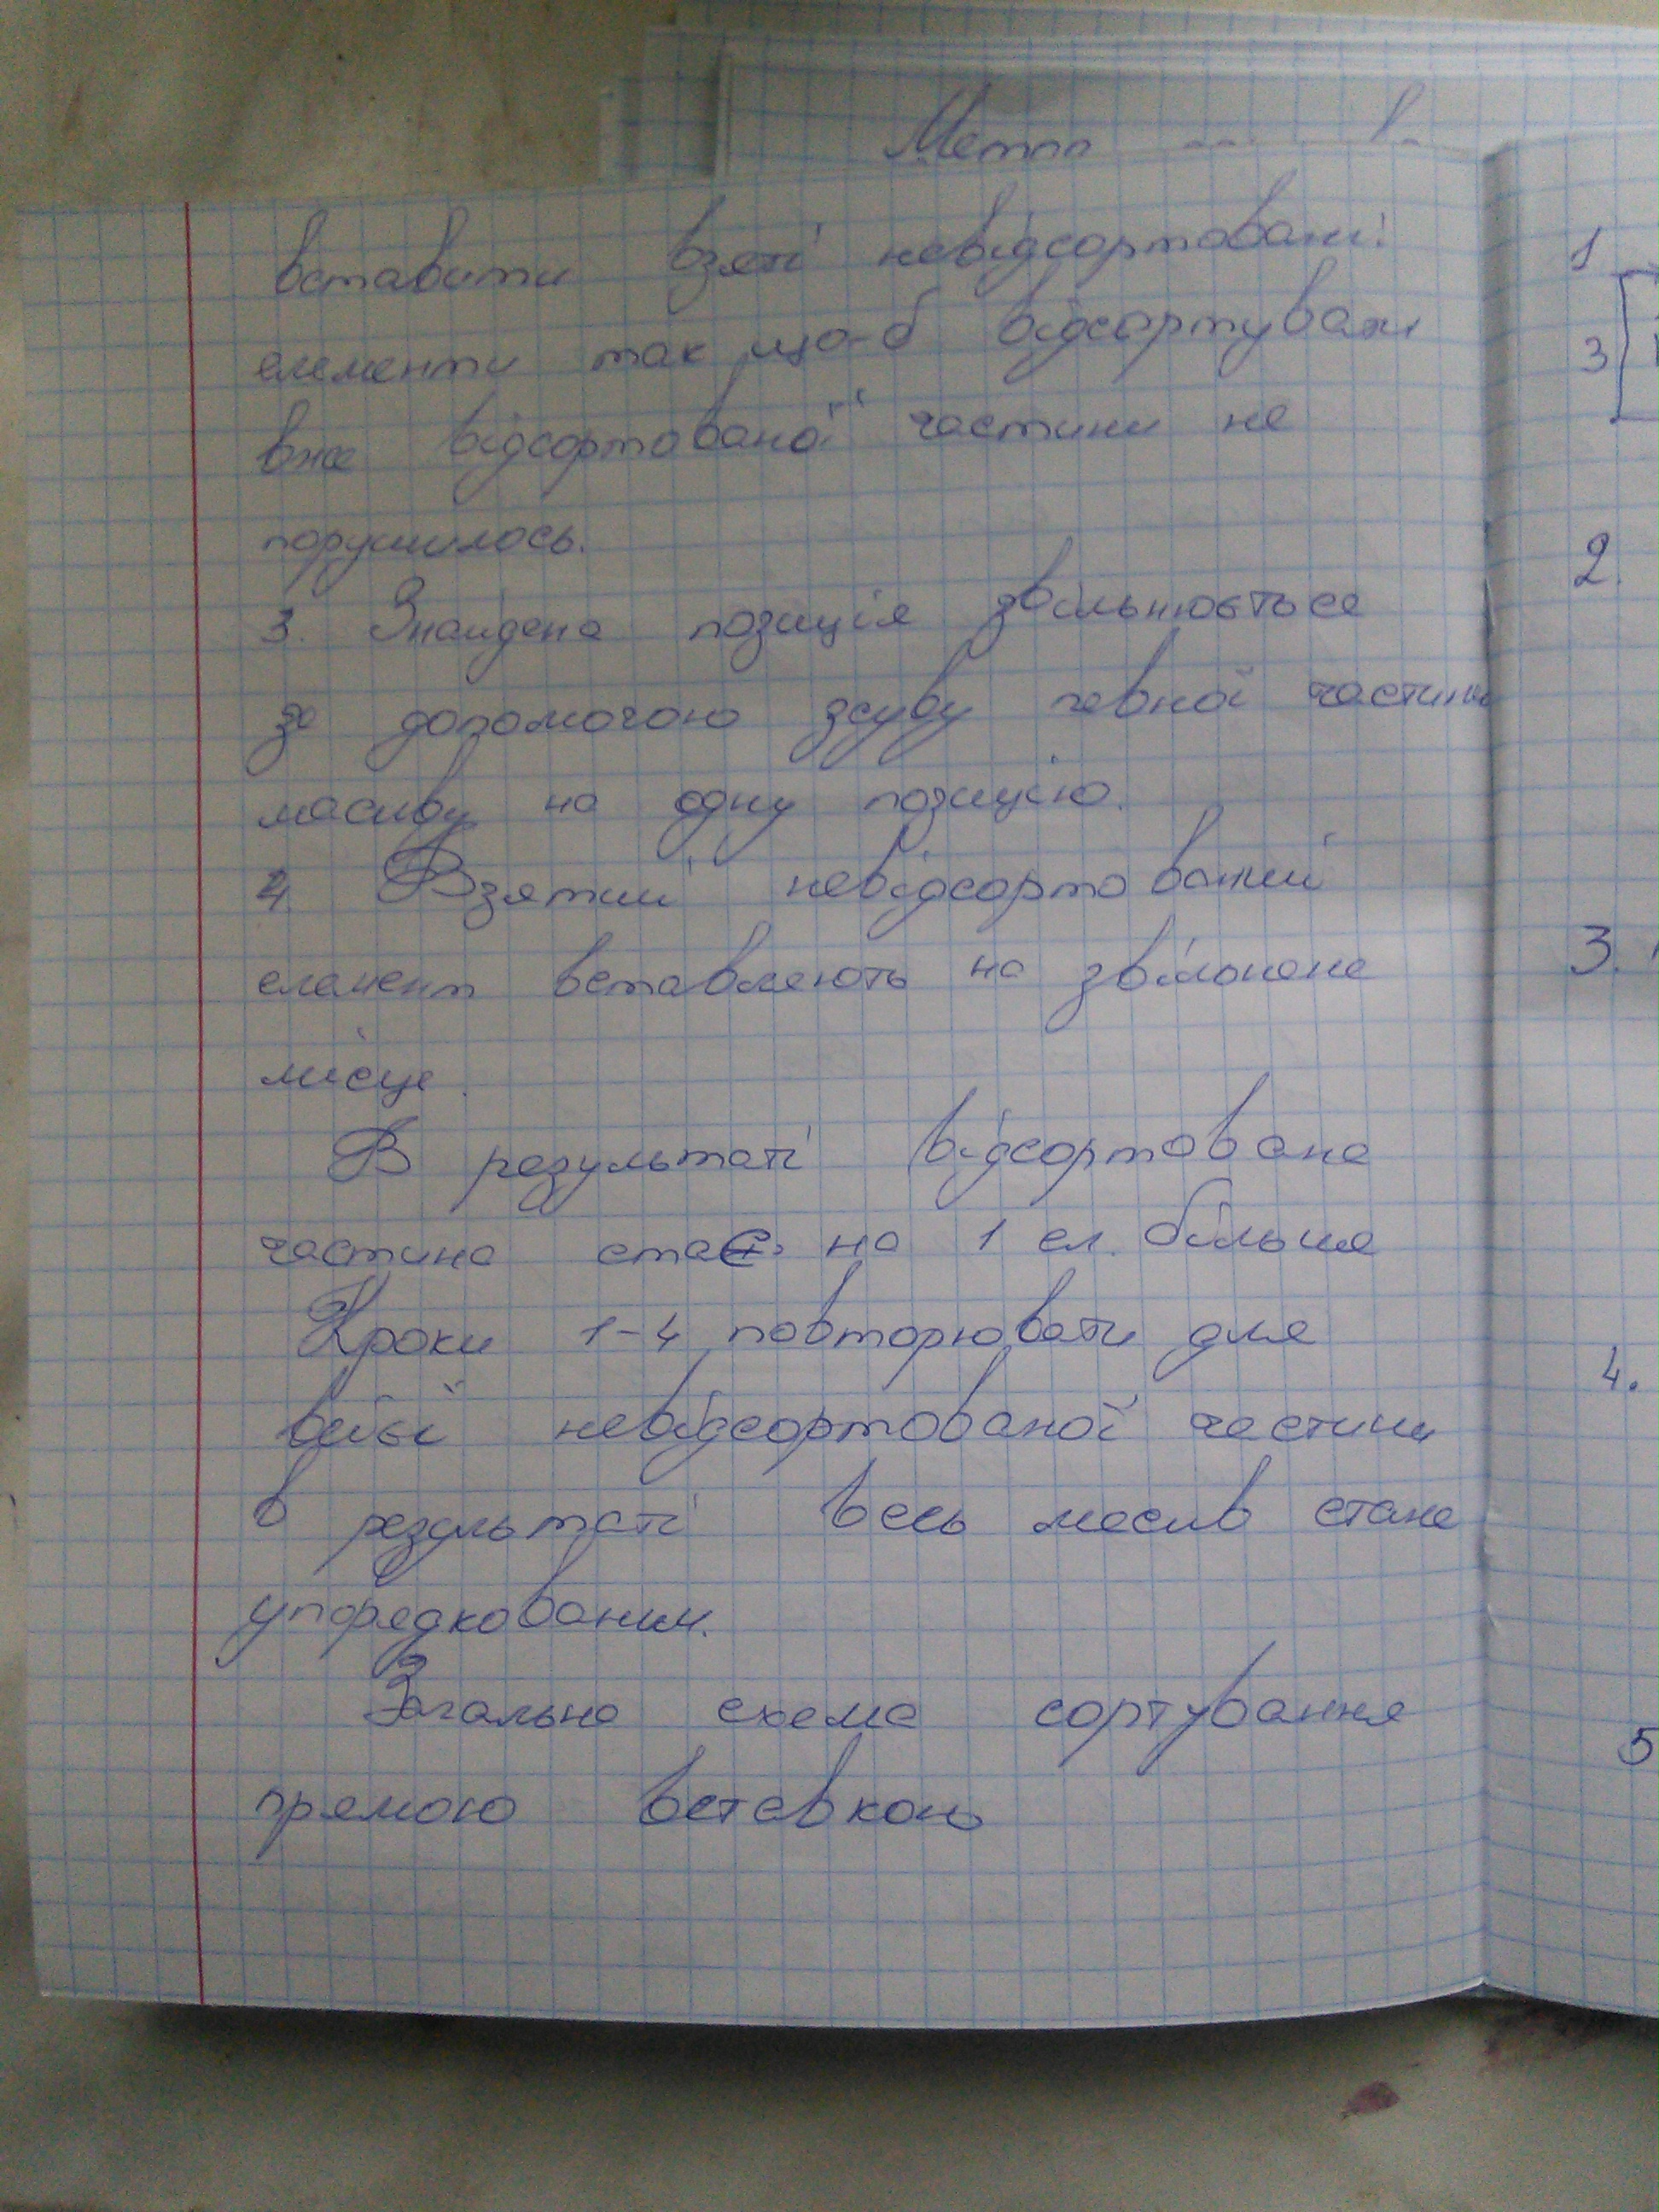 вставити взяті невідсортовані
елементи так що-б відсортувані
вже відсортованої частини не
порушилось.
3. Знайдена позиція звільнюється
за допомогою зсуву певної частини
масиву на одну позицію.
4. Взятий невідсортований
елемент вставляють на звільнене
місце.
В результаті відсортована
частина стає на 1 ел. більше
Кроки 1-4 повторювати для
всієї невідсортованої частини
в результаті весь масив стане
упорядкованим.
Загальна схема сортування
прямою вставкою
1
3
2.
3.
4.
5